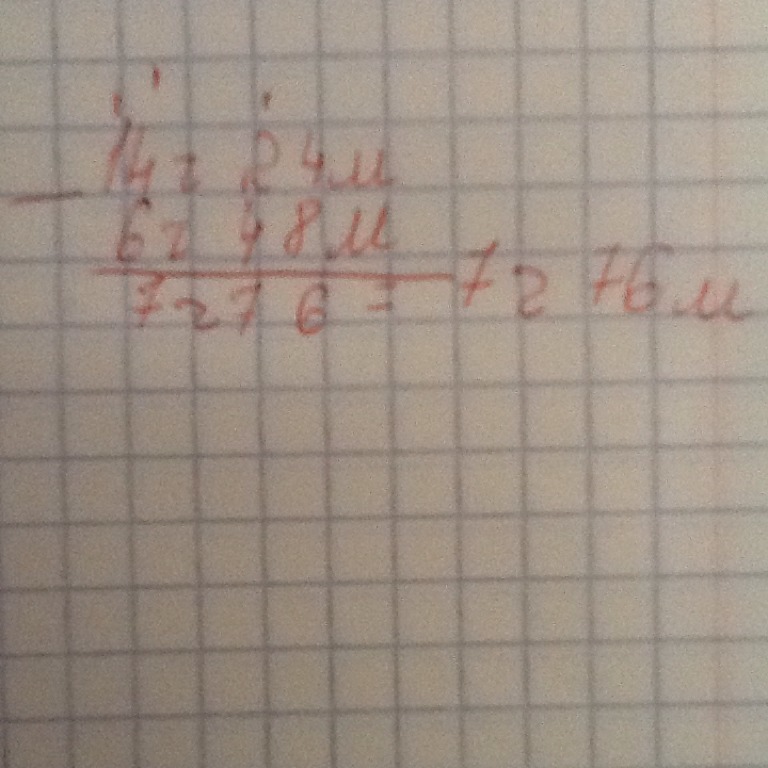 14г 24м
− 6г 48м
7г 7 6 = 7г 76м